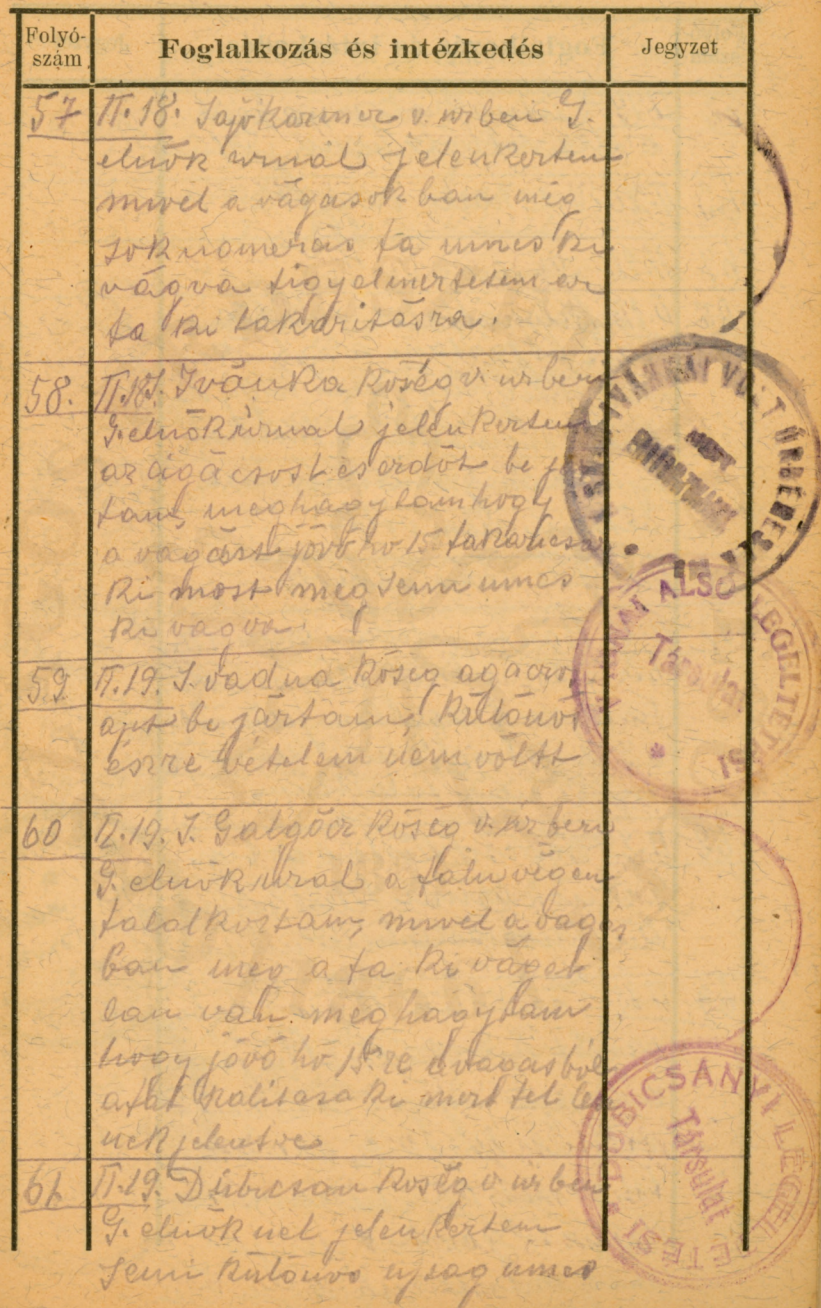 Folyó-
szám
Foglalkozás és intézkedés
Jegyzet
57 II. 18. Sajókaziner v. urben G.
elnök urnál jelenkeztem
mivel a vágásokban még
sok numerás fa nincs ki
vágva figyelmeztetem az
fa ki takaritásra.
58. II. 18. S. Ivánka Község v. urberi
G. elnök úrnál jelenkeztem
az ágácsost és erdőt be
tam, meghagytam hogy
a vágást jövő hó 15 takaricsa
ki most még semi nincs
ki vágva.
59 II. 19. S. vadna Község agácso
be jártam, Külőnös
észre vételem nem vőltt
60 II. 19. S. Galgócz Község v. úrberi
G. elnök ural a falu végen
talalkoztam, mivel a vagás
ban meg a fa ki vágat
lan van. meghagytam
hogy jövő hó 15.re a vagasból
a fát ki mert fel les
nek jelentve
61. II. 19. Dubicsan Község v. urberi
G. elnök nél jelenkeztem
semi Külőnvs ujsag nincs
VOLT ÚRBÉRES
ALSÓ LEGELTETÉSI
Társulat
DUBICSÁNYI LEGELTETÉSI
Társulat